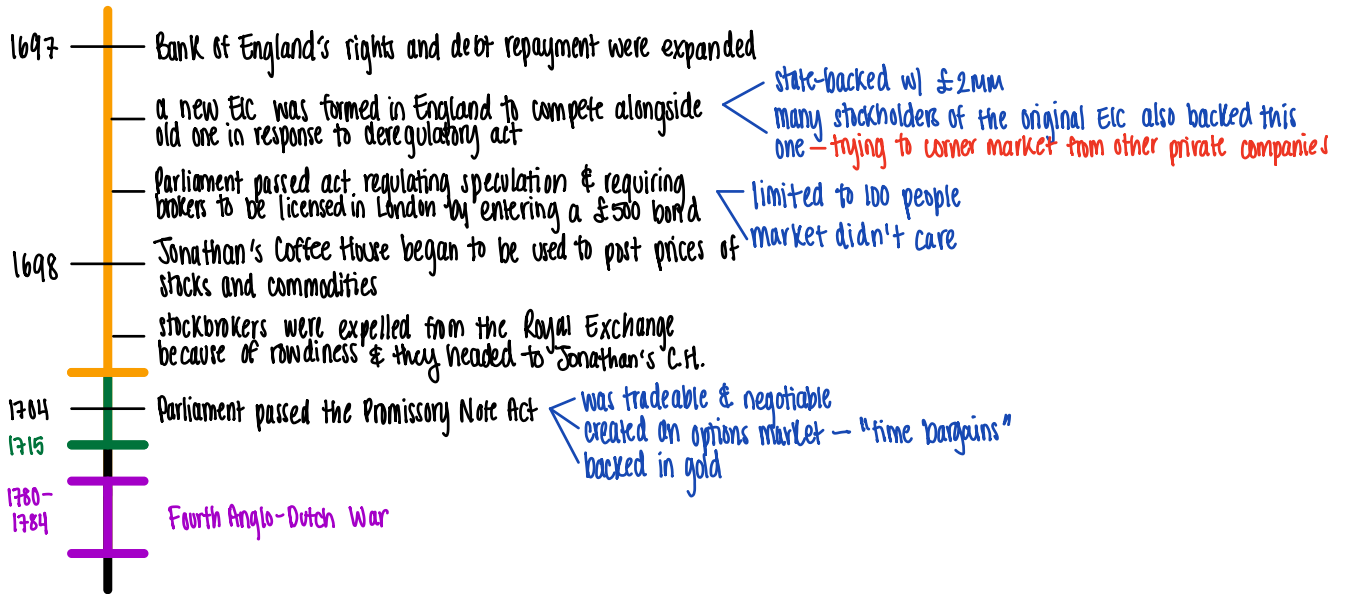 1697
Bank of England's rights and debt repayment were expanded
a new EIC was formed in England to compete alongside
old one in response to deregulatory act
state-backed w/ £2MM
many stockholders of the original EIC also backed this
one — trying to corner market from other private companies
Parliament passed act regulating speculation & requiring
brokers to be licensed in London by entering a £500 bond
limited to 100 people
market didn't care
1698
Jonathan's Coffee House began to be used to post prices of
stocks and commodities
stockbrokers were expelled from the Royal Exchange
because of rowdiness & they headed to Jonathan's C.H.
1704
Parliament passed the Promissory Note Act
was tradeable & negotiable
created an options market — "time bargains"
backed in gold
1715
1780-
1784
Fourth Anglo-Dutch War